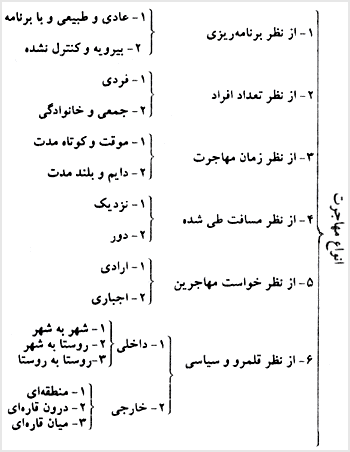 انواع مهاجرت
۱- از نظر برنامه‌ریزی
۱- عادی و طبیعی و با برنامه
۲- بیرویه و کنترل نشده
۲- از نظر تعداد افراد
۱- فردی
۲- جمعی و خانوادگی
۳- از نظر زمان مهاجرت
۱- موقت و کوتاه مدت
۲- دایم و بلند مدت
۴- از نظر مسافت طی شده
۱- نزدیک
۲- دور
۵- از نظر خواست مهاجرین
۱- ارادی
۲- اجباری
۶- از نظر قلمرو و سیاسی
۱- داخلی
۱- شهر به شهر
۲- روستا به شهر
۳-روستا به روستا
۲- خارجی
۱- منطقه‌ای
۲- درون قاره‌ای
۳- میان قاره‌ای